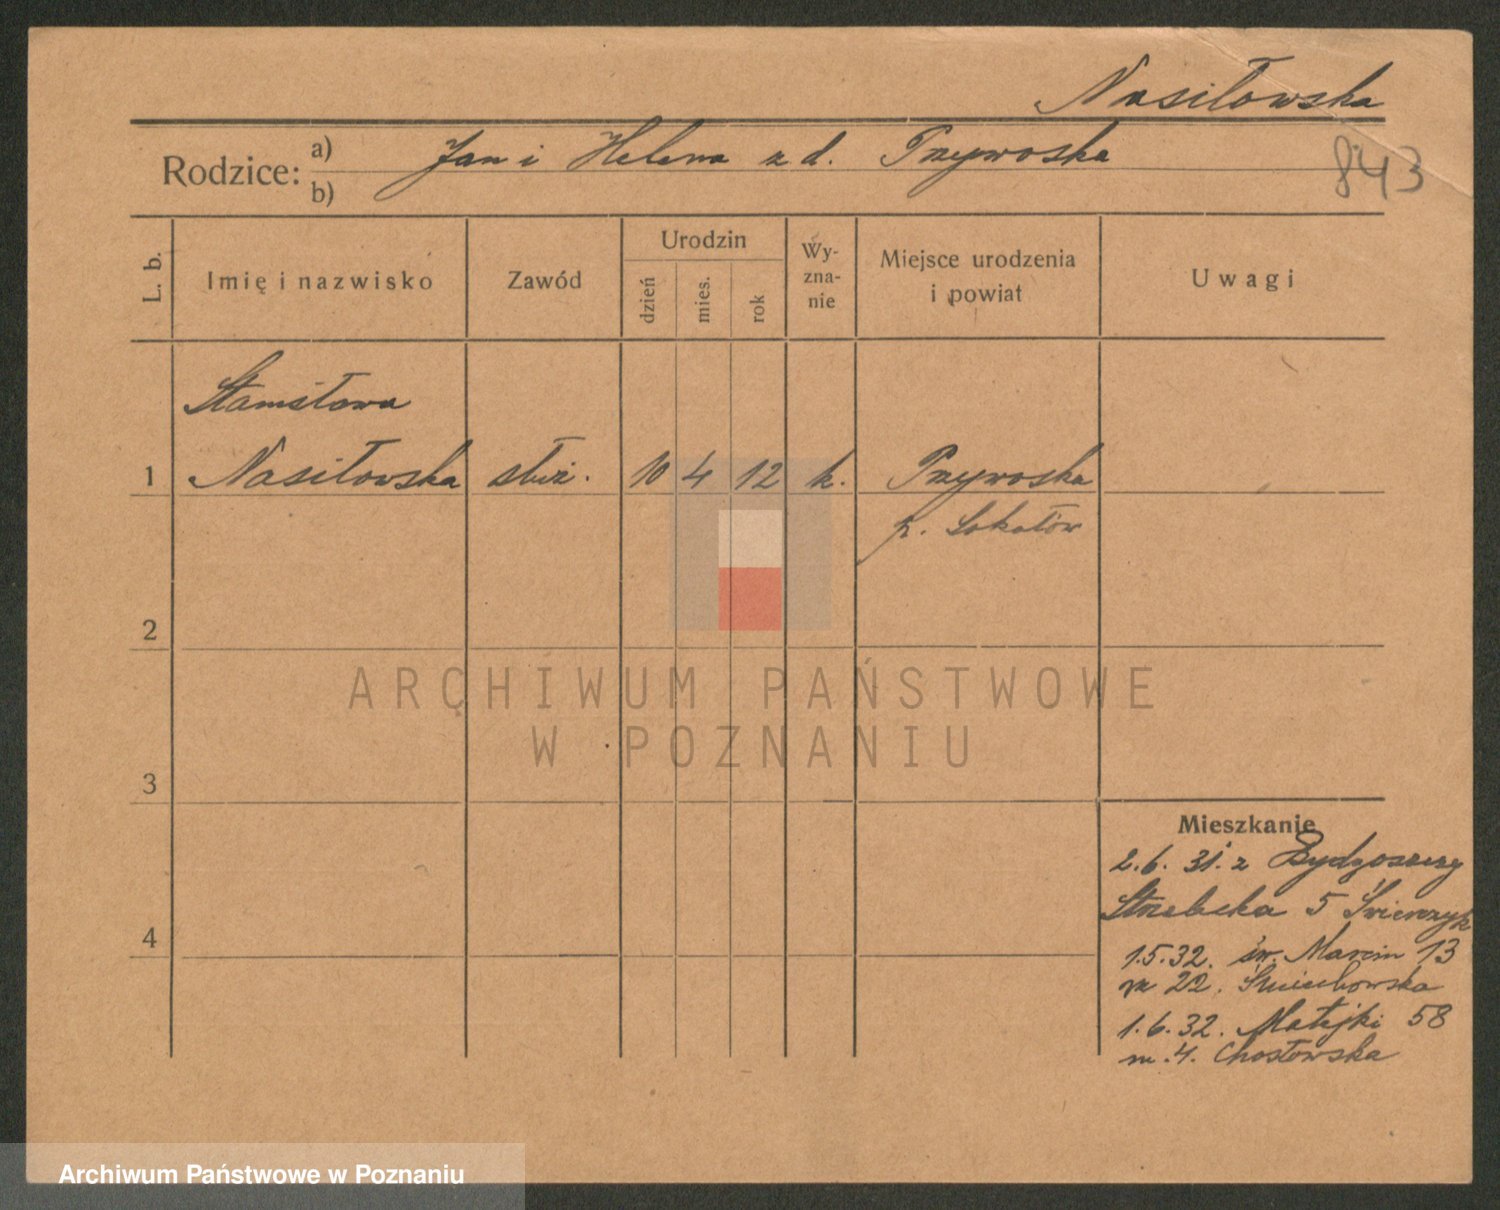 Nasiłowska
843
Rodzice: a) Jan i Helena z d. Przywoska
b)
L. b.
Imię i nazwisko
Zawód
Urodzin
dzień
mies.
rok
Wy-
zna-
nie
Miejsce urodzenia
i powiat
Uwagi
Stanisława
1 Nasiłowska służ. 10 4 12 k. Przywoska
p. Sokołów
2
3
4
Mieszkanie
2.6.31. z Bydgoszczy
Strzelecka 5 Świerczyk
1.5.32. św. Marcin 13
m 22.
1.6.32. Matejki 58
m. 4. Chosłowska
ARCHIWUM PAŃSTWOWE
W POZNANIU
Archiwum Państwowe w Poznaniu